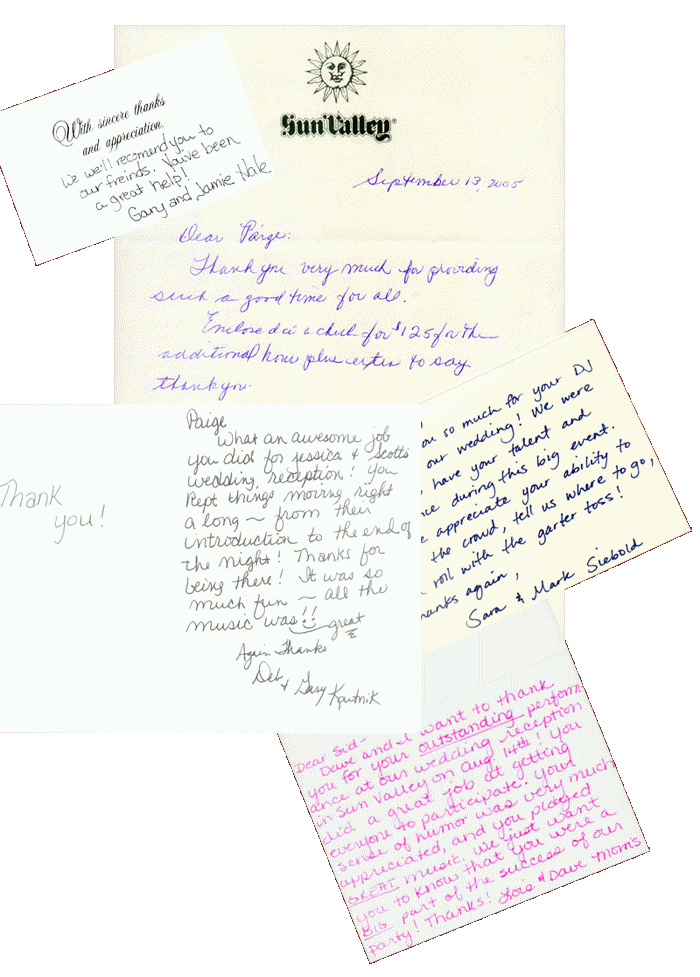 With sincere thanks
and appreciation.
We we'll recomend you to
our freinds. You've been
a great help!
Gary and Jamie Hale
Sun Valley®
September 13, 2005
Dear Paige:
Thank you very much for providing
such a good time for all.
Enclosed is a check for $125 for the
additional hour plus extra to say
thank you.
Thank
you!
Paige
What an awesome job
you did for Jessica & Scott's
wedding reception! You
kept things moving right
a long ~ from their
introduction to the end of
the night! Thanks for
being there! It was so
much fun ~ all the
music was great!!
Again Thanks
Deb & Gary
so much for your DJ
our wedding! We were
have your talent and
during this big event.
appreciate your ability to
the crowd, tell us where to go,
roll with the garter toss!
again,
Sara & Mark Siebold
Dear Sid-
Dave and I want to thank
you for your outstanding perform-
ance at our wedding reception
in Sun Valley on Aug 14th! You
did a great job at getting
everyone to participate. Your
sense of humor was very much
appreciated, and you played
GREAT music. We just want
you to know that you were a
BIG part of the success of our
party! Thanks! Lois & Dave